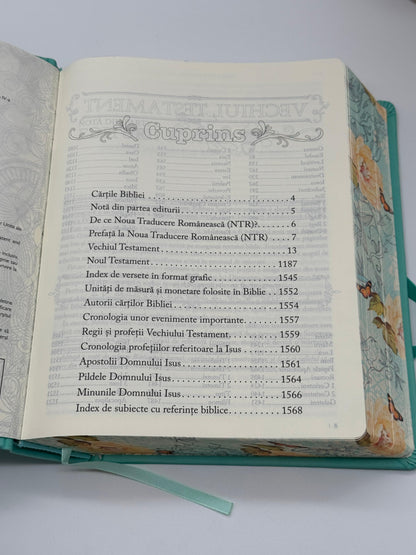 Cuprins
Cărțile Bibliei 4
Notă din partea editurii 5
De ce Noua Traducere Românească (NTR)? 6
Prefață la Noua Traducere Românească (NTR) 7
Vechiul Testament 13
Noul Testament 1187
Index de versete în format grafic 1545
Unități de măsură și monetare folosite în Biblie 1552
Autorii cărților Bibliei 1554
Cronologia unor evenimente importante 1557
Regii și profeții Vechiului Testament 1559
Cronologia profețiilor referitoare la Isus 1560
Apostolii Domnului Isus 1561
Pildele Domnului Isus 1564
Minunile Domnului Isus 1566
Index de subiecte cu referințe biblice 1568